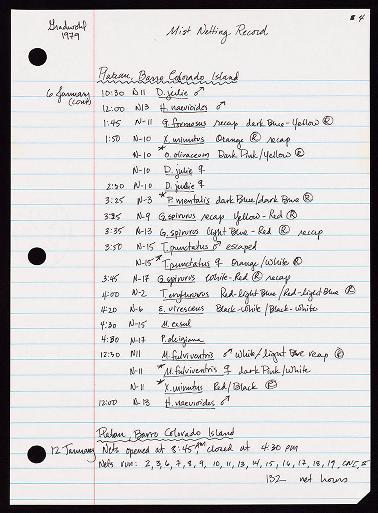 Gradwohl
1979
Mist Netting Record
4
Plateau, Barro Colorado Island
6 January (cont)
10:30 N11 D. julie ♂
12:00 N13 H. naevioides ♂
1:45 N-11 G. formosus recap dark Blue-Yellow Ⓡ
1:50 N-10 X. minutus Orange Ⓡ recap
N-10 *O. olivaceum Dark Pink/Yellow Ⓡ
N-10 D. julie ♀
2:30 N-10 D. julie ♀
3:25 N-3 *P. mentalis dark Blue/dark Blue Ⓡ
3:25 N-9 G. spirurus recap Yellow-Red Ⓡ
3:35 N-13 G. spirurus light Blue-Red Ⓡ recap
3:50 N-15 T. punctatus ♂ escaped
N-15 *T. punctatus ♀ Orange/White Ⓡ
3:45 N-17 G. spirurus White-Red Ⓡ recap
4:00 N-2 Red-light Blue/Red-light Blue Ⓡ
4:20 N-6 E. virescens Black-White/Black-White
4:30 N-15
4:30 N-17
12:30 N11 M. fulviventris ♂ White/light Blue recap Ⓡ
N-11 *M. fulviventris ♀ dark Pink/White
N-11 *X. minutus Red/Black Ⓡ
12:00 N-13 H. naevioides ♂
Plateau, Barro Colorado Island
12 January Nets opened at 8:45 am closed at 4:30 pm
Nets run: 2, 3, 6, 7, 8, 9, 10, 11, 13, 14, 15, 16, 17, 18, 19,
132 net hours